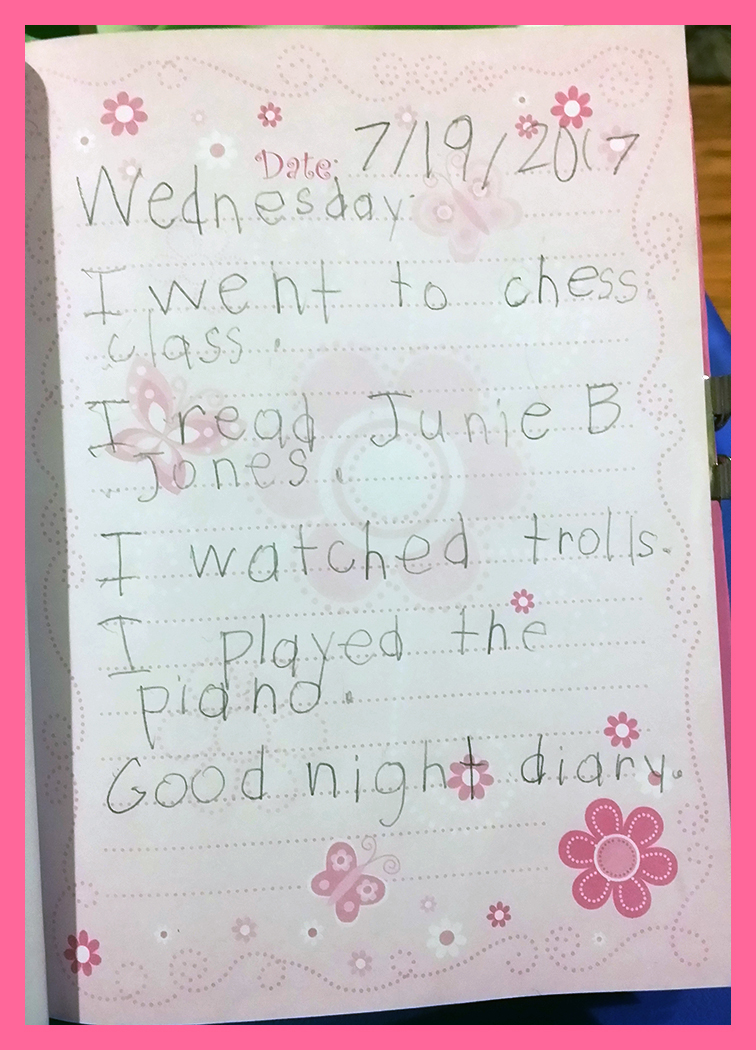 Date: 7/19/2017
Wednesday.
I went to chess
class.
I read Junie B
Jones.
I watched trolls.
I played the
piano.
Good night diary.